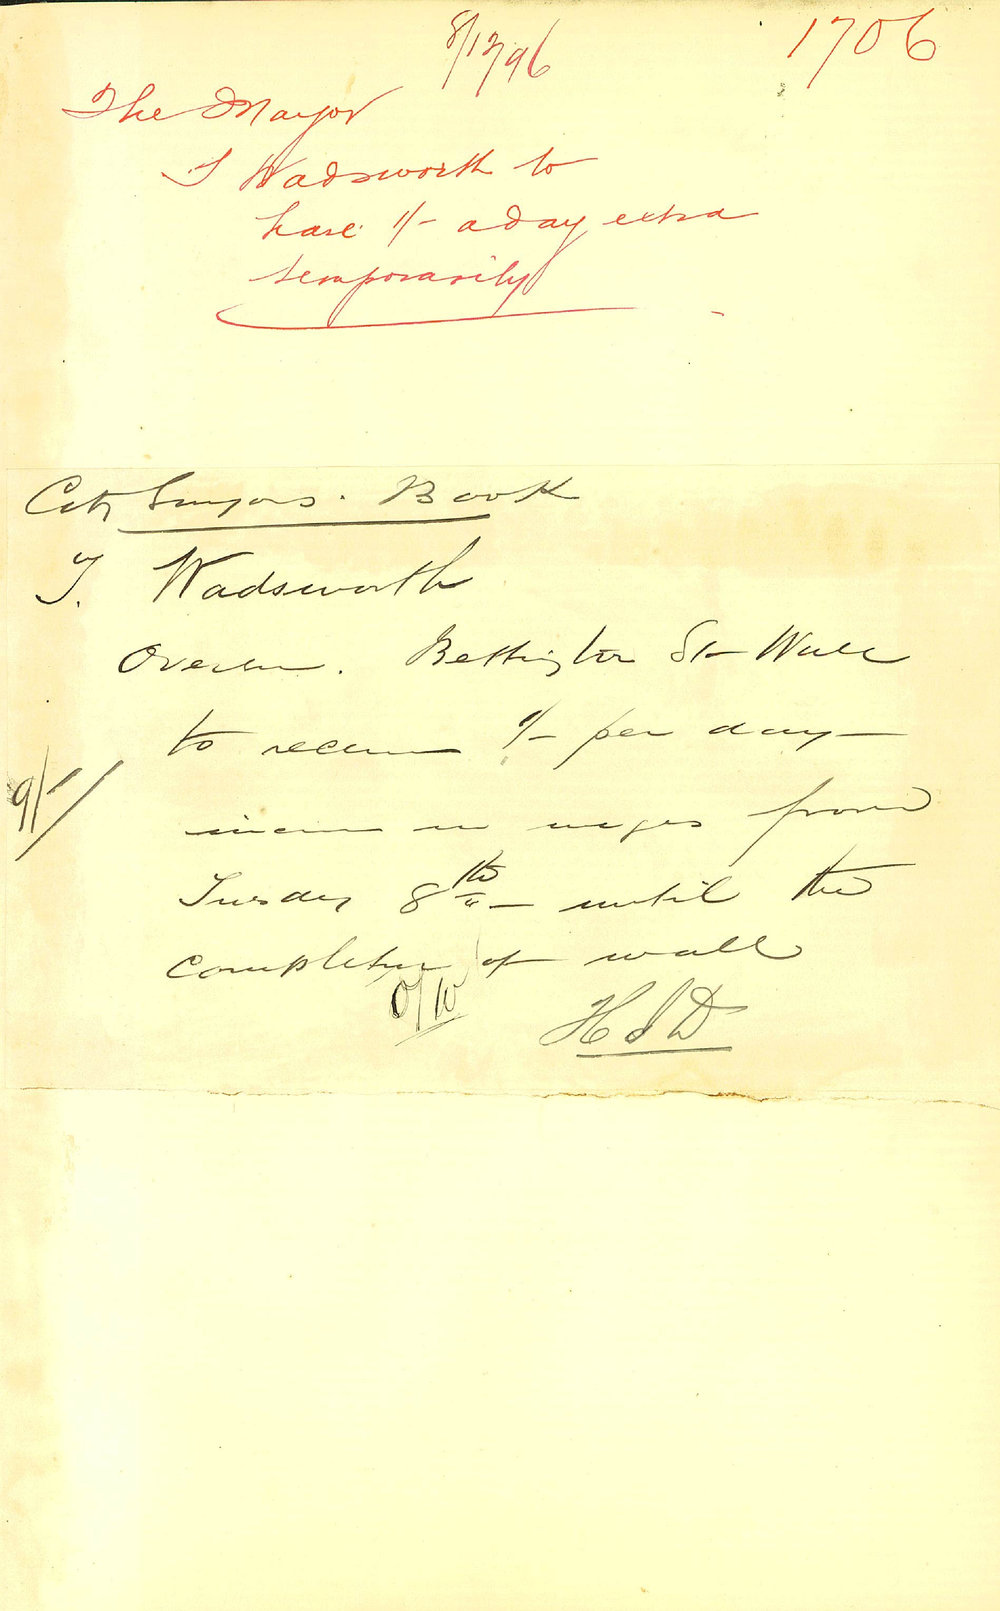 8/12/96
1706
The Mayor
T Wadsworth to
have 1/- a day extra
temporarily
City Surveyors. Book
T. Wadsworth
Overseer. Bettington St Wall
to receive 1/- per day
9/-
increase in wages from
Tuesday 8th until the
completion of wall
H D